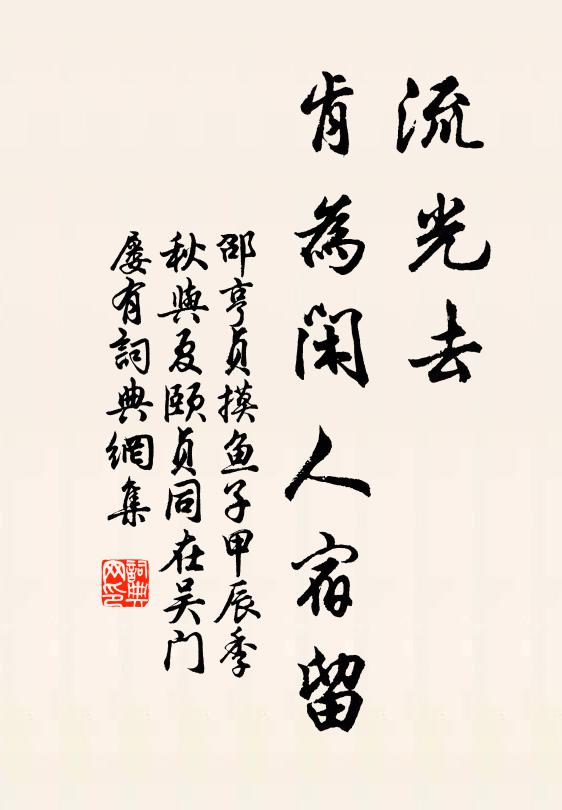 流光去
肯為閑人宿留
邵亨貞摸鱼子甲辰季
秋與夏頤貞同在吴门
屡有詞典網集
詞典网印